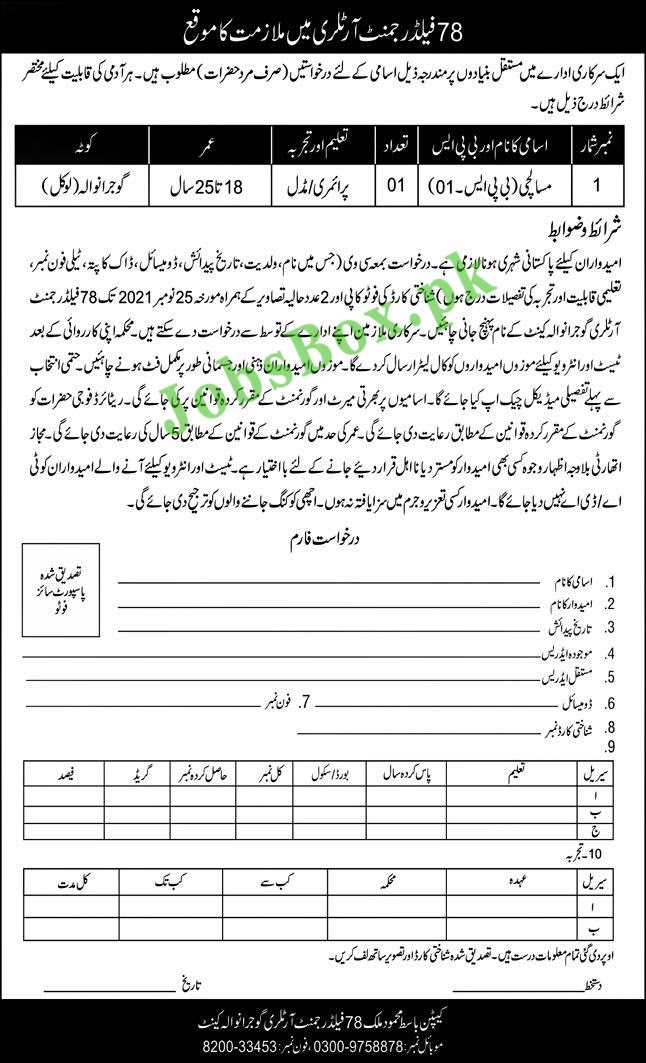 78 فیلڈ رجمنٹ آرٹلری میں ملازمت کا موقع
ایک سرکاری ادارے میں مستقل بنیادوں پر مندرجہ ذیل اسامی کے لئے درخواستیں (صرف مرد حضرات) مطلوب ہیں۔ ہر آدمی کی قابلیت کیلئے مختصر
شرائط درج ذیل ہیں۔
نمبر شمار اسامی کا نام اور بی پی ایس تعداد تعلیم اور تجربہ عمر کوٹہ
1 مسالچی (بی پی ایس۔01) 01 پرائمری/مڈل 18 تا 25 سال گوجرانوالہ (لوکل)
شرائط وضوابط
امیدواران کیلئے پاکستانی شہری ہونا لازمی ہے۔ درخواست بمعہ سی وی (جس میں نام، ولدیت، تاریخ پیدائش، ڈومیسائل، ڈاک کا پتہ، ٹیلی فون نمبر،
تعلیمی قابلیت اور تجربہ کی تفصیلات درج ہوں) شناختی کارڈ کی فوٹو کاپی اور 2 عدد حالیہ تصاویر کے ہمراہ مورخہ 25 نومبر 2021 تک 78 فیلڈ رجمنٹ
آرٹلری گوجرانوالہ کینٹ کے نام پہنچ جانی چاہئیں۔ سرکاری ملازمین اپنے ادارے کے توسط سے درخواست دے سکتے ہیں۔ محکمہ اپنی کارروائی کے بعد
ٹیسٹ اور انٹرویو کیلئے موزوں امیدواروں کو کال لیٹر ارسال کرے گا۔ موزوں امیدواران ذہنی اور جسمانی طور پر مکمل فٹ ہونے چاہئیں۔ حتمی انتخاب
سے پہلے تفصیلی میڈیکل چیک اپ کیا جائے گا۔ اسامیوں پر بھرتی میرٹ اور گورنمنٹ کے مقرر کردہ قوانین پر کی جائے گی۔ ریٹائرڈ فوجی حضرات کو
گورنمنٹ کے مقرر کردہ قوانین کے مطابق رعایت دی جائے گی۔ عمر کی حد میں گورنمنٹ کے قوانین کے مطابق 5 سال کی رعایت دی جائے گی۔ مجاز
اتھارٹی بلاوجہ اظہار وجوہ کسی بھی امیدوار کو مسترد یا نااہل قرار دیئے جانے کے لئے بااختیار ہے۔ ٹیسٹ اور انٹرویو کیلئے آنے والے امیدواران کو ٹی
اے/ڈی اے نہیں دیا جائے گا۔ امیدوار کسی تعزیر و جرم میں سزا یافتہ نہ ہوں۔ اچھی کوکنگ جاننے والوں کو ترجیح دی جائے گی۔
JobsBox.pk
درخواست فارم
تصدیق شدہ
پاسپورٹ سائز
فوٹو
1. اسامی کا نام
2. امیدوار کا نام
3. تاریخ پیدائش
4. موجودہ ایڈریس
5. مستقل ایڈریس
6. ڈومیسائل 7. فون نمبر
8. شناختی کارڈ نمبر
9.
سیریل تعلیم پاس کردہ سال بورڈ/سکول کل نمبر حاصل کردہ نمبر گریڈ فیصد
ا
ب
ج
10۔ تجربہ
سیریل عہدہ محکمہ کب سے کب تک کل مدت
ا
ب
اوپر دی گئی تمام معلومات درست ہیں۔ تصدیق شدہ شناختی کارڈ اور تصویر ساتھ لف کریں۔
دستخط تاریخ
کیپٹن باسط محمود ملک 78 فیلڈ رجمنٹ آرٹلری گوجرانوالہ کینٹ
موبائل نمبر: 0300-9758878، فون نمبر: 33453-8200